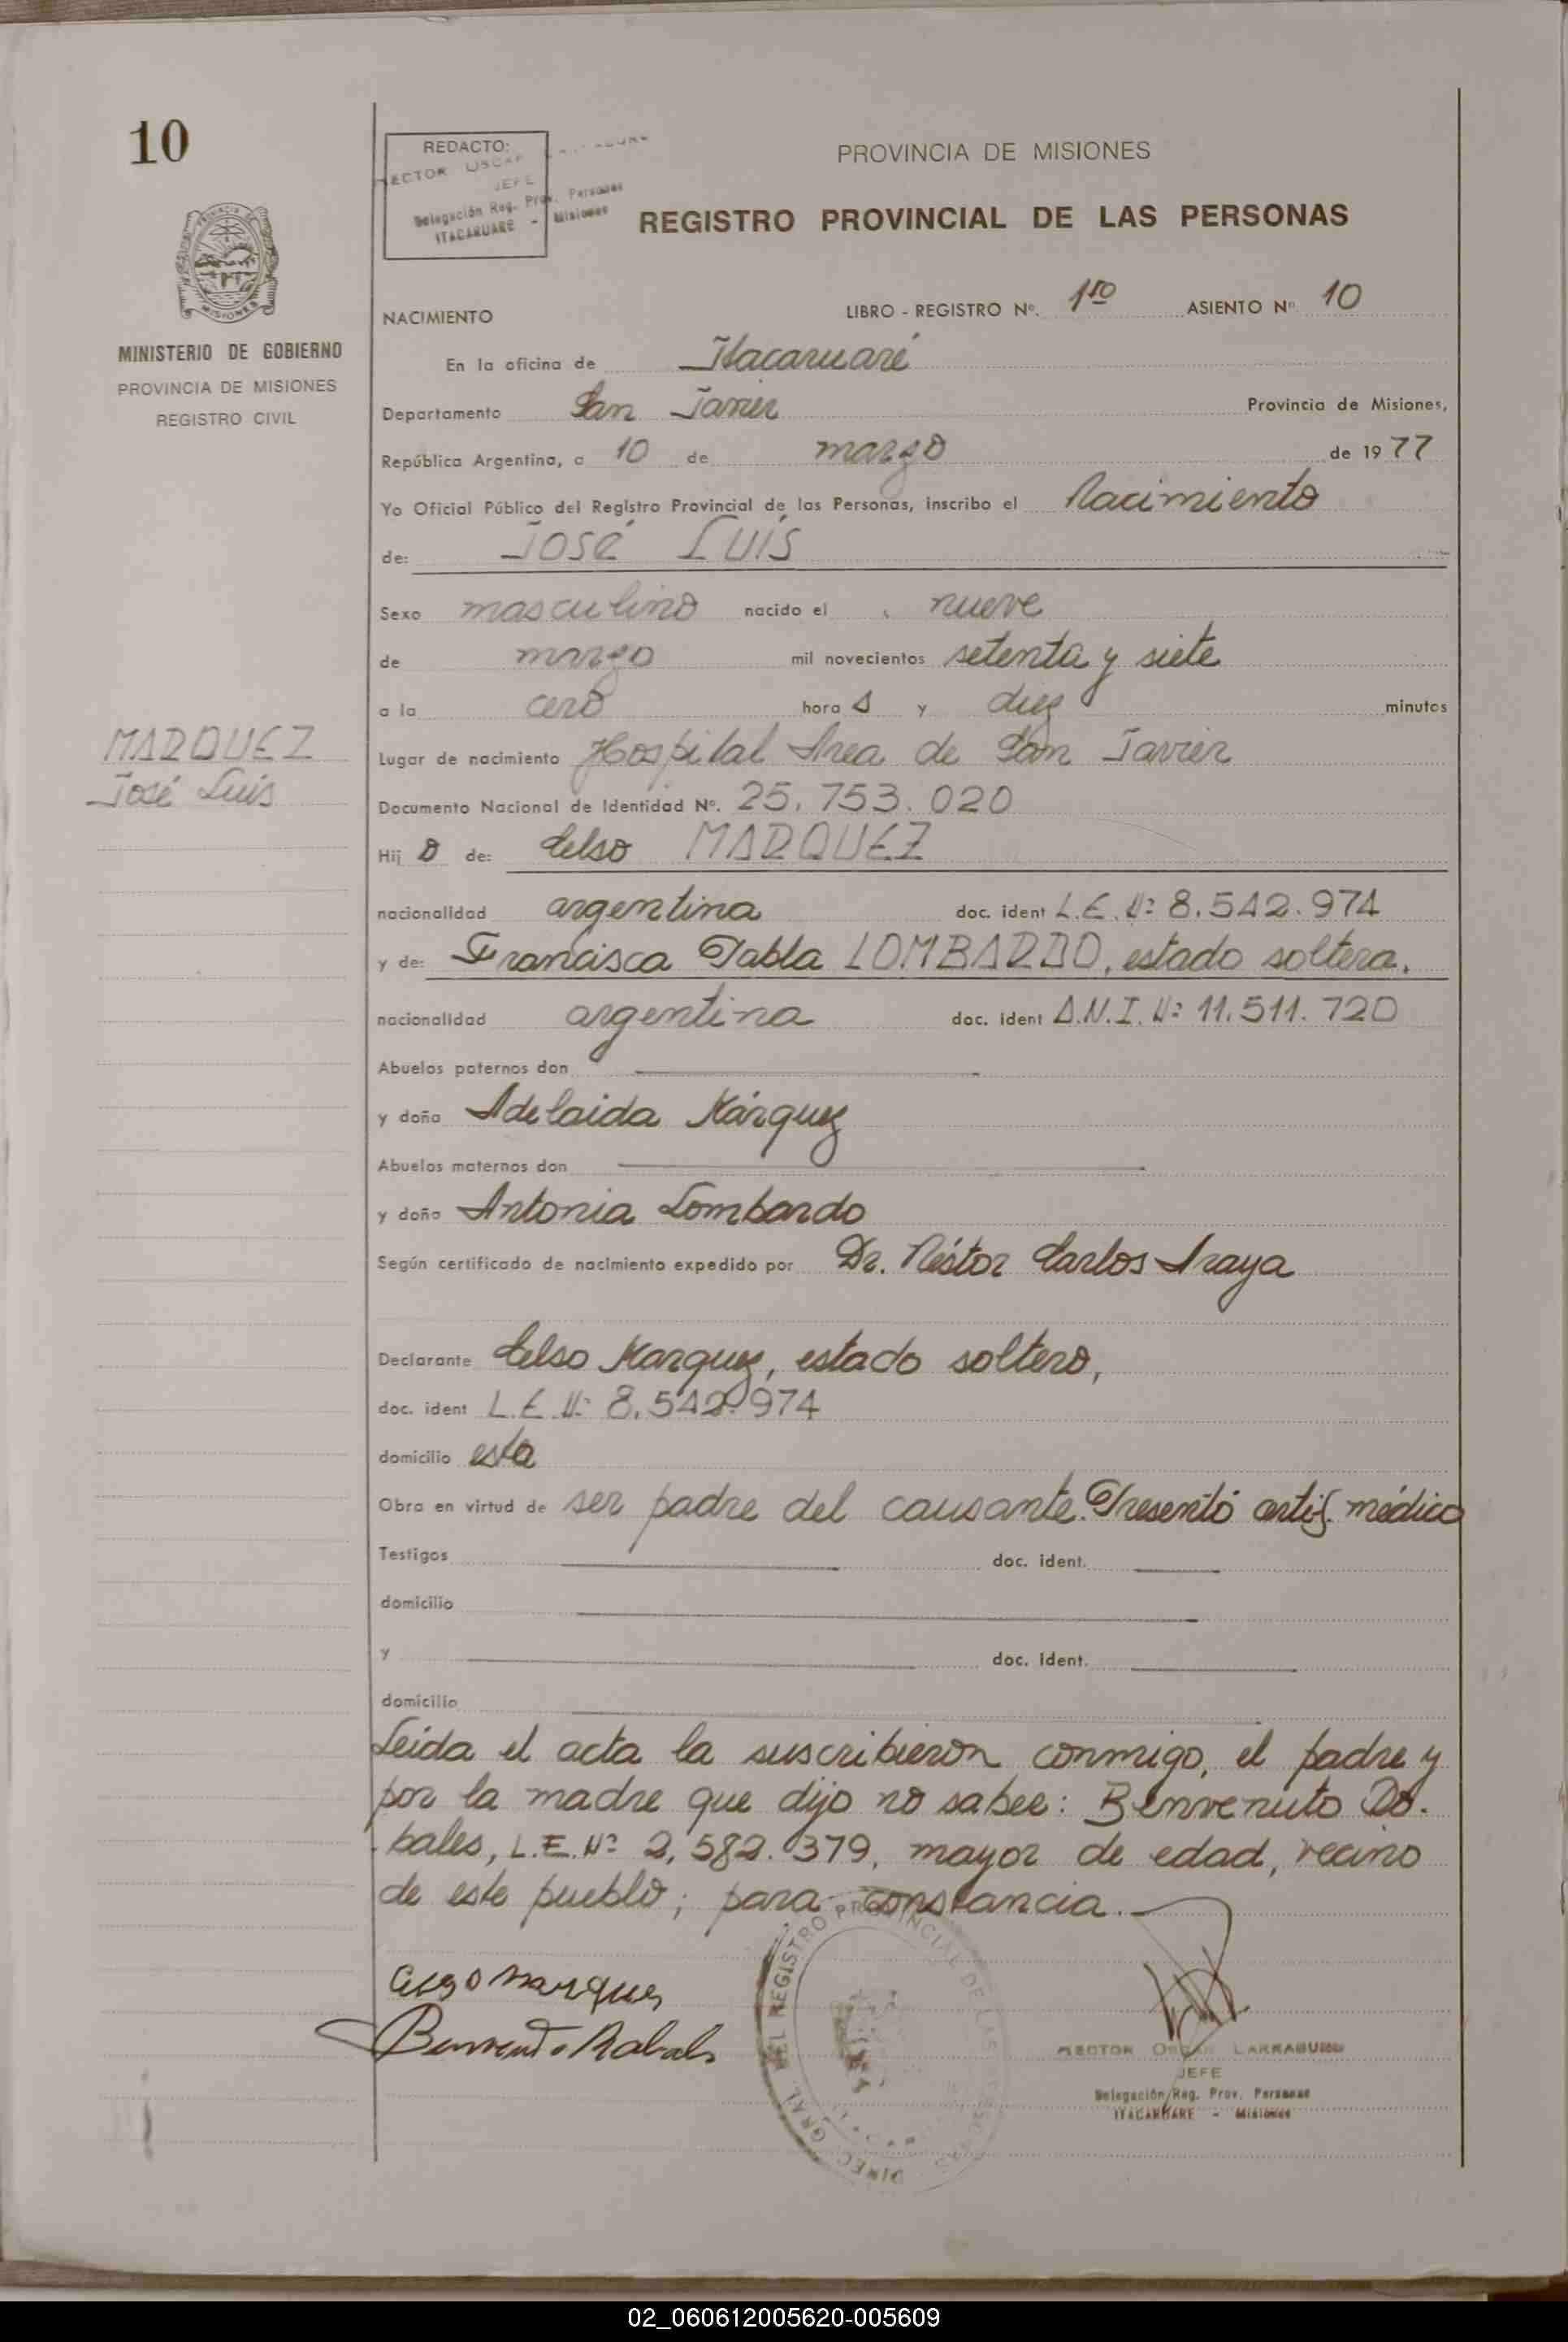 10
REDACTO:
HECTOR OSCAR
JEFE
Delegación Reg. Prov. Personas
ITACARUARE - Misiones
PROVINCIA DE MISIONES
REGISTRO PROVINCIAL DE LAS PERSONAS
MINISTERIO DE GOBIERNO
PROVINCIA DE MISIONES
REGISTRO CIVIL
NACIMIENTO LIBRO - REGISTRO Nº. 1ro ASIENTO Nº 10
En la oficina de Itacaruaré
Departamento San Javier Provincia de Misiones,
República Argentina, a 10 de marzo de 1977
Yo Oficial Público del Registro Provincial de las Personas, inscribo el Nacimiento
de: José Luís
Sexo masculino nacido el nueve
de marzo mil novecientos setenta y siete
a la cero hora s y diez minutos
MARQUEZ
José Luis
Lugar de nacimiento Hospital Area de San Javier
Documento Nacional de Identidad Nº. 25.753.020
Hij o de: Celso MARQUEZ
nacionalidad argentina doc. ident L.E.Nº 8.542.974
y de: Francisca Pabla LOMBARDO, estado soltera.
nacionalidad argentina doc. ident D.N.I. Nº 11.511.720
Abuelos paternos don
y doña Adelaida Márquez
Abuelos maternos don
y doña Antonia Lombardo
Según certificado de nacimiento expedido por Dr. Néstor Carlos Araya
Declarante Celso Marquez, estado soltero,
doc. ident L.E.Nº 8.542.974
domicilio esta
Obra en virtud de ser padre del causante. Presentó certif. médico
Testigos doc. ident.
domicilio
y doc. ident.
domicilio
Leída el acta la suscribieron conmigo, el padre y
por la madre que dijo no saber: Benvenuto
L.E.Nº 2.582.379, mayor de edad, vecino
de este pueblo; para constancia.
Celso Marquez
DIREC. GRAL. DEL REGISTRO PROVINCIAL DE LAS PERSONAS
HECTOR OSCAR LARRABURU
JEFE
Delegación Reg. Prov. Personas
ITACARUARE - Misiones
02_060612005620-005609